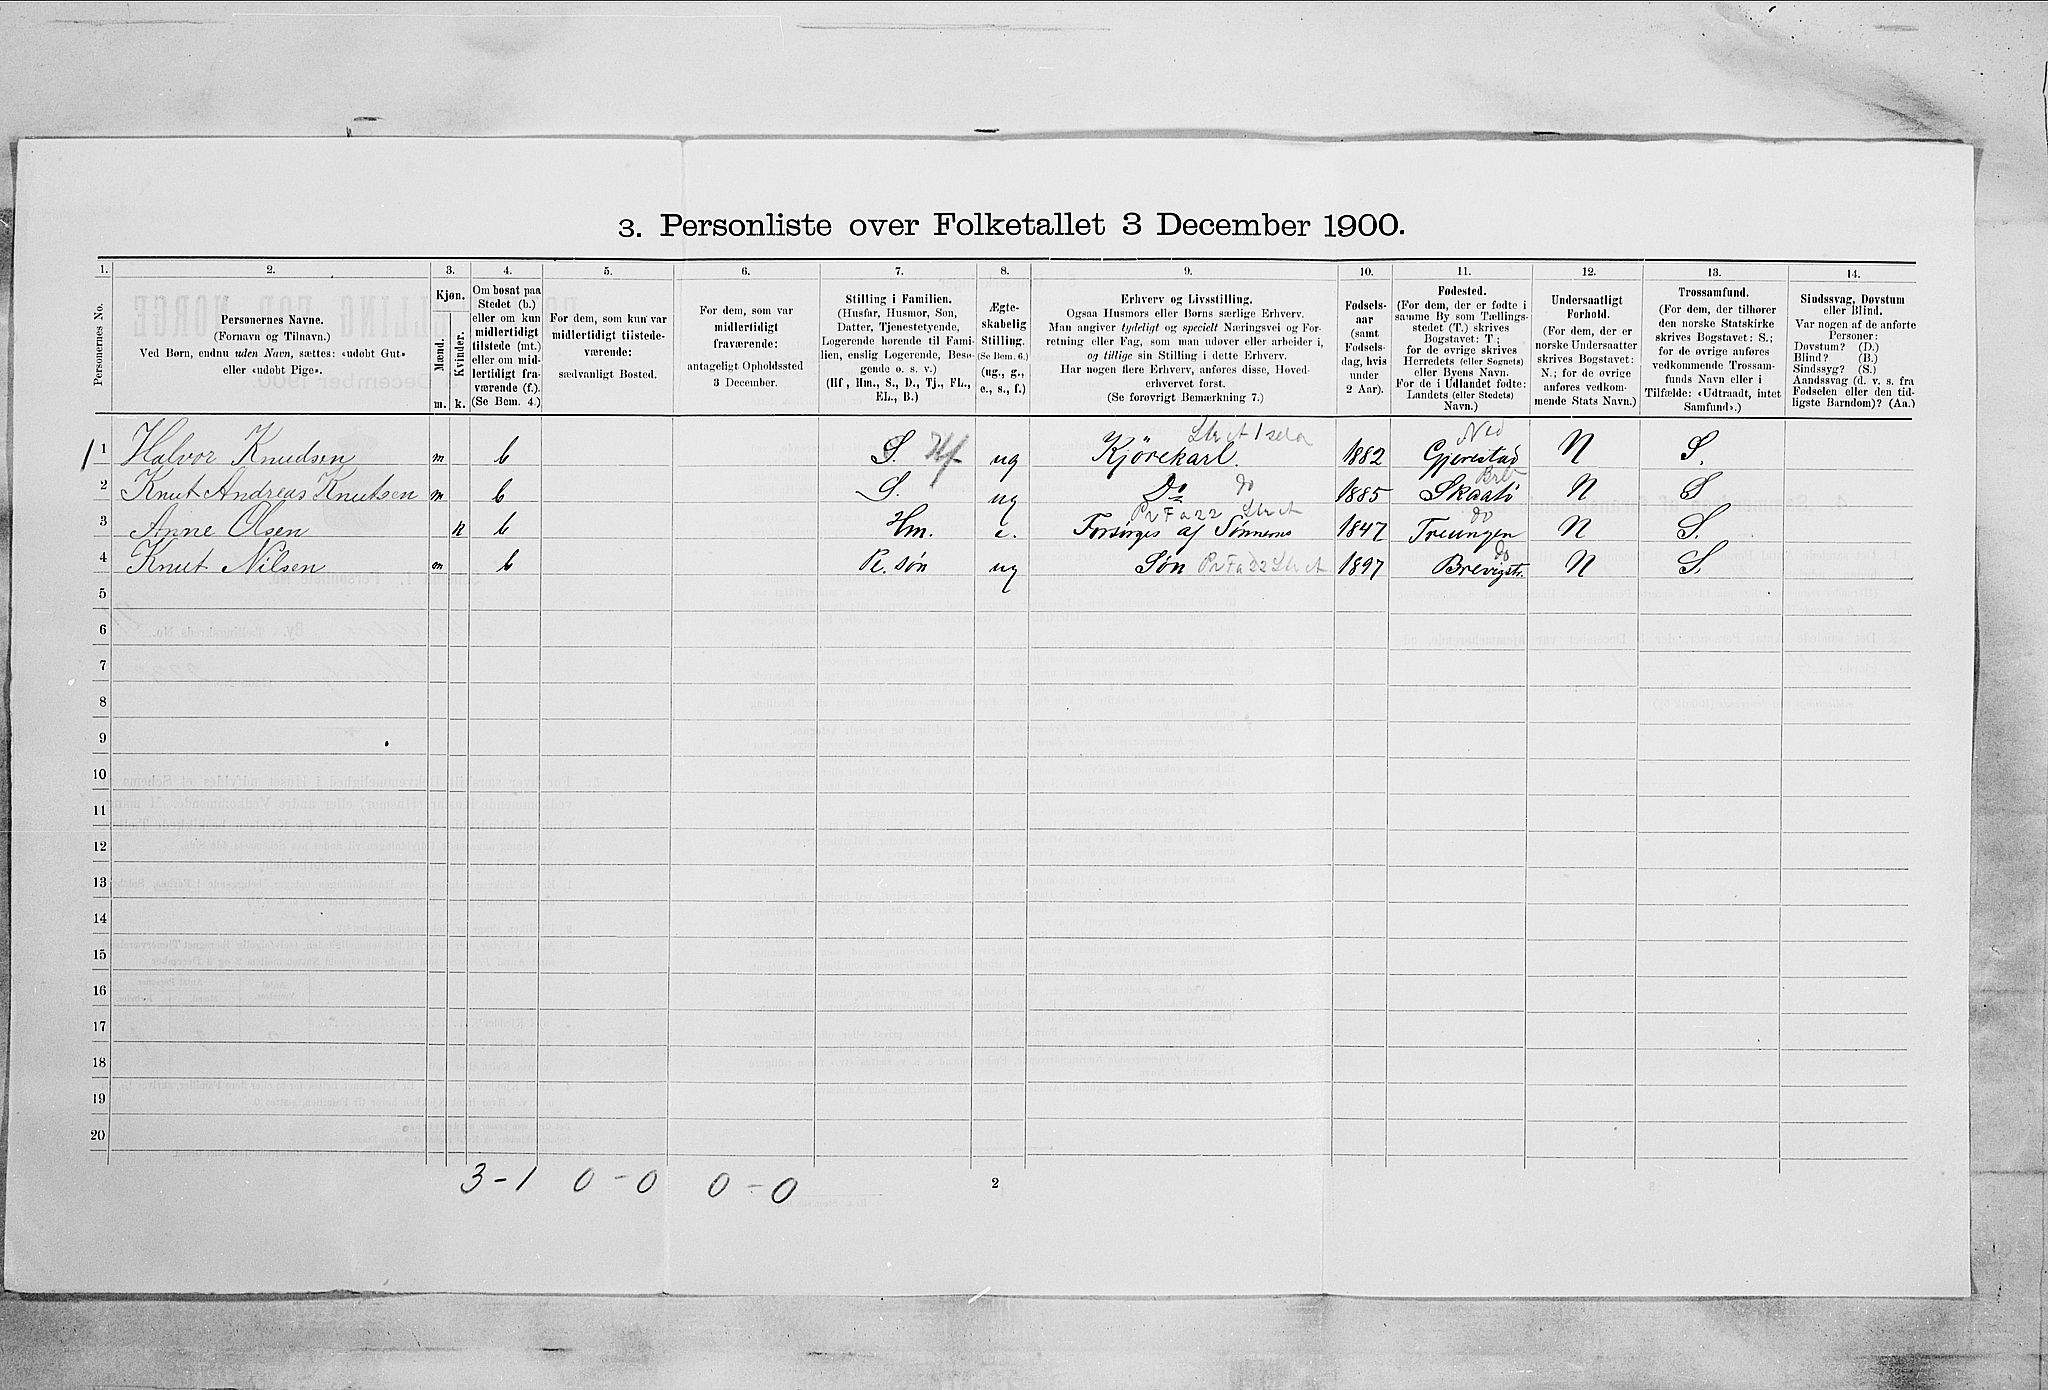 3. Personliste over Folketallet 3 December 1900.
1. 2. 3. 4. 5. 6. 7. 8. 9. 10. 11. 12. 13. 14.
Personernes No.
Personernes Navne.
(Fornavn og Tilnavn.)
Ved Børn, endnu uden Navn, sættes: «udøbt Gut»
eller «udøbt Pige».
Kjøn.
Mænd.
Kvinder.
m. k.
Om bosat paa
Stedet (b.)
eller om kun
midlertidigt
tilstede (mt.)
eller om mid-
lertidigt fra-
værende (f.).
(Se Bem. 4.)
For dem, som kun var
midlertidigt tilstede-
værende:
sædvanligt Bosted.
For dem, som var
midlertidigt
fraværende:
antageligt Opholdssted
3 December.
Stilling i Familien.
(Husfar, Husmor, Søn,
Datter, Tjenestetyende,
Logerende hørende til Fami-
lien, enslig Logerende, Besø-
gende o. s. v.)
(Hf, Hm., S., D., Tj., FL.,
EL., B.)
Ægte-
skabelig
Stilling.
(Se Bem. 6.)
(ug., g.,
e., s., f.)
Erhverv og Livsstilling.
Ogsaa Husmors eller Børns særlige Erhverv.
Man angiver tydeligt og specielt Næringsvei og For-
retning eller Fag, som man udøver eller arbeider i,
og tillige sin Stilling i dette Erhverv.
Har nogen flere Erhverv, anføres disse, Hoved-
erhvervet først.
(Se forøvrigt Bemærkning 7.)
Fødsels-
aar
(samt
Fødsels-
dag, hvis
under
2 Aar).
Fødested.
(For dem, der er fødte i
samme By som Tællings-
stedet (T.) skrives
Bogstavet: T;
for de øvrige skrives
Herredets (eller Sognets)
eller Byens Navn.
For de i Udlandet fødte:
Landets (eller Stedets)
Navn.)
Undersaatligt
Forhold.
(For dem, der er
norske Undersaatter
skrives Bogstavet:
N.; for de øvrige
anføres vedkom-
mende Stats Navn.)
Trossamfund.
(For dem, der tilhører
den norske Statskirke
skrives Bogstavet: S.;
for de øvrige anføres
vedkommende Trossam-
funds Navn eller i
Tilfælde: «Udtraadt, intet
Samfund».)
Sindssvag, Døvstum
eller Blind.
Var nogen af de anførte
Personer:
Døvstum? (D.)
Blind? (B.)
Sindssyg? (S.)
Aandssvag (d. v. s. fra
Fødselen eller den tid-
ligste Barndom)? (Aa.)
1 Halvor Knudsen m b S. Hf ug Kjørekarl. 1882 Gjerestad N S.
2 Knut Andreas Knutsen m b S. ug Do do 1885 Skaatø N S
3 Anne Olsen k b Hm. e. Forsørges af Sønnerne 1847 Treungen do N S.
4 Knut Nilsen m b Pl. søn ug Søn 1897 Brevigstr. do N S.
5
6
7
8
9
10
11
12
13
14
15
16
17
18
19
20
3-1 0-0 0-0
2